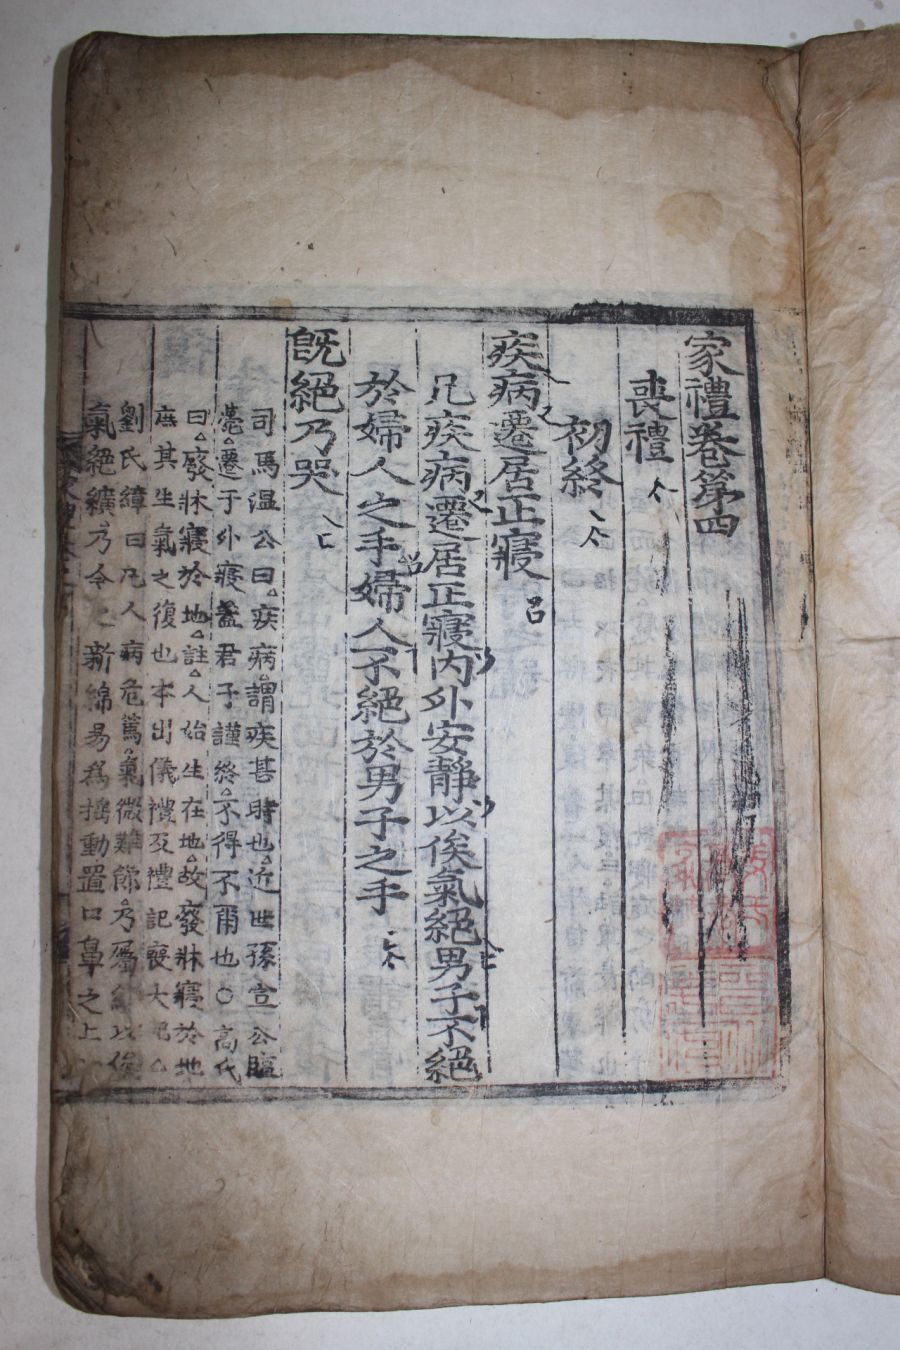 家禮卷第四
喪禮
初終
疾病遷居正寢
凡疾病遷居正寢內外安靜以俟氣絕男子不絕
於婦人之手婦人不絕於男子之手
旣絕乃哭
司馬溫公曰疾病謂疾甚時也近世孫宣公臨
薨遷于外寢盖君子謹終不得不爾也○高氏
曰廢牀寢於地註人始生在地故廢牀寢於地
庶其生氣之復也本出儀禮及禮記喪大記
劉氏璋曰凡人病危篤氣微難節乃屬纊以俟
氣絕纊乃今之新綿易爲搖動置口鼻之上